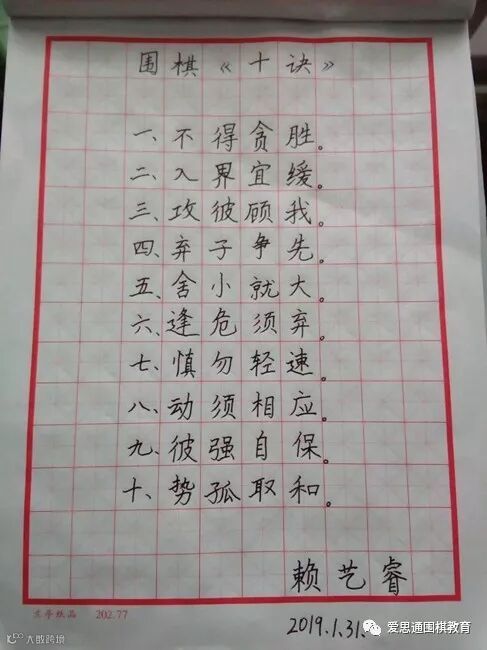 围棋《十诀》
一、不得贪胜。
二、入界宜缓。
三、攻彼顾我。
四、弃子争先。
五、舍小就大。
六、逢危须弃。
七、慎勿轻速。
八、动须相应。
九、彼强自保。
十、势孤取和。
赖艺睿
2019.1.31.
202.77
爱思通围棋教育
大数跨境